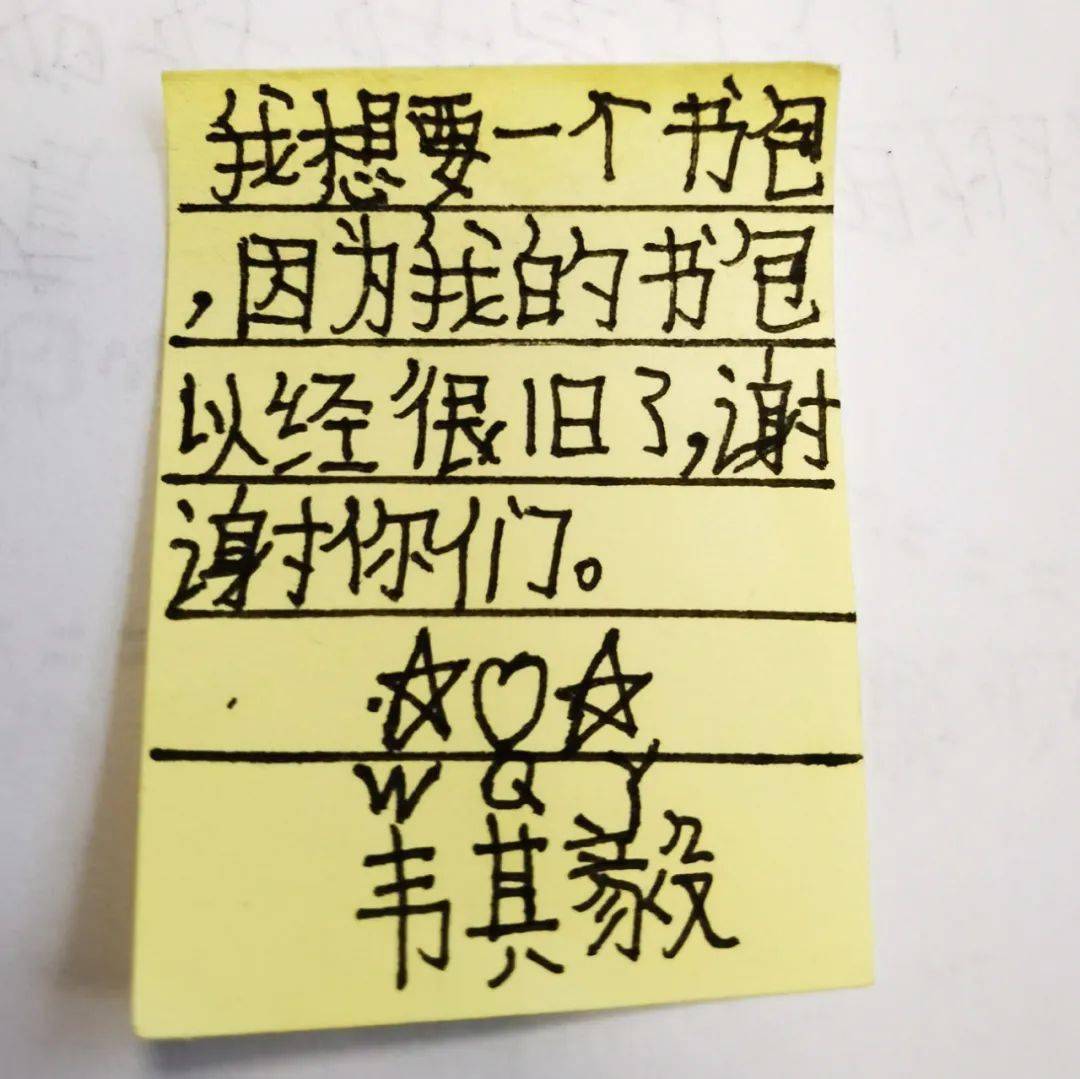 我想要一个书包
，因为我的书包
以经很旧了，谢
谢你们。
☆♡☆
W Q Y
韦其毅